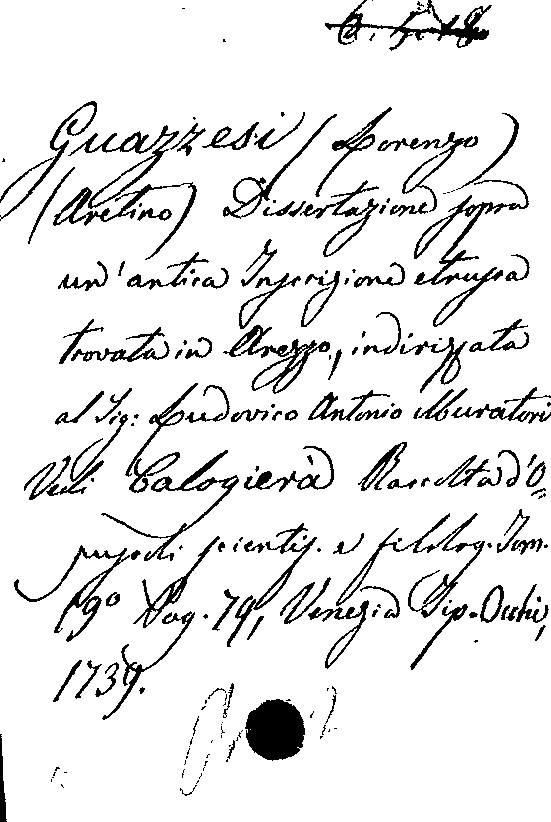 Guazzesi (Lorenzo)
(Aretino) Dissertazione sopra
un' antica Inscrizione etrusca
trovata in Arezzo, indirizzata
al Sig: Ludovico Antonio Muratori
Vedi Calogierà Raccolta d'O=
puscoli scientif. e filolog. Tom.
19º Pag. 79, Venezia Tip. Occhi,
1739.